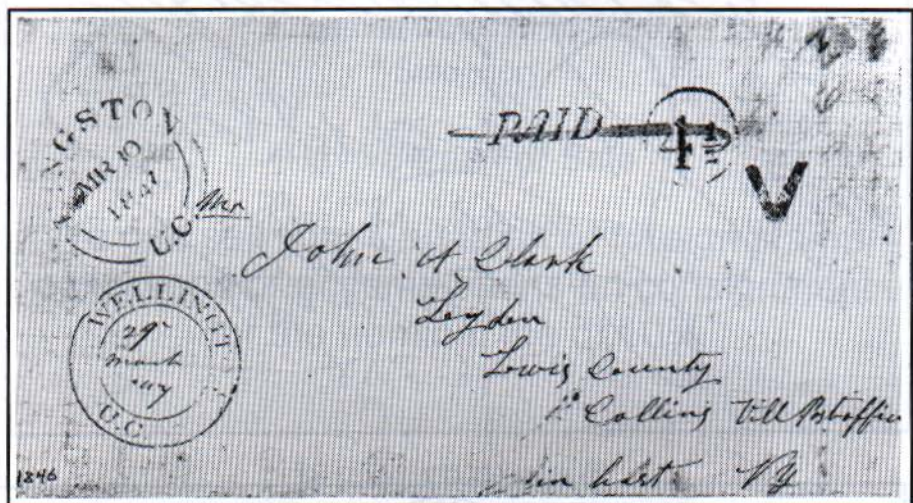 KINGSTON
MR 30
1847
U.C.
PAID 4½
V
Mr
John A Clark
Leyden
Lewis County
Collins Vill Postoffic
NY
WELLINGT
29
March
1847
U.C.
1846